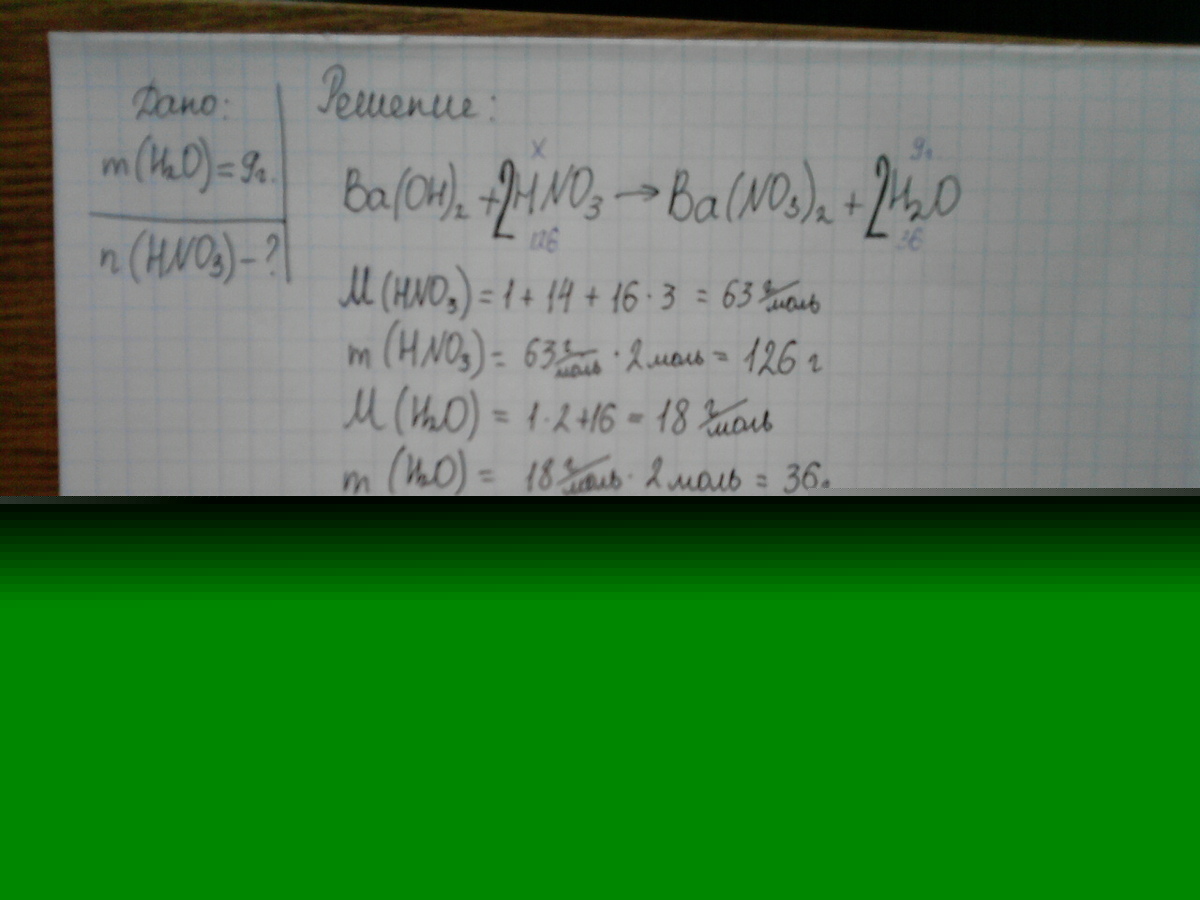 Дано:
m(H₂O)=9г.
n(HNO₃)-?
Решение:
x 9г
Ba(OH)₂ + 2HNO₃ → Ba(NO₃)₂ + 2H₂O
126 36
M(HNO₃) = 1 + 14 + 16 · 3 = 63 г/моль
m(HNO₃) = 63 г/моль · 2 моль = 126 г
M(H₂O) = 1·2+16 = 18 г/моль
m(H₂O) = 18 г/моль · 2 моль = 36г